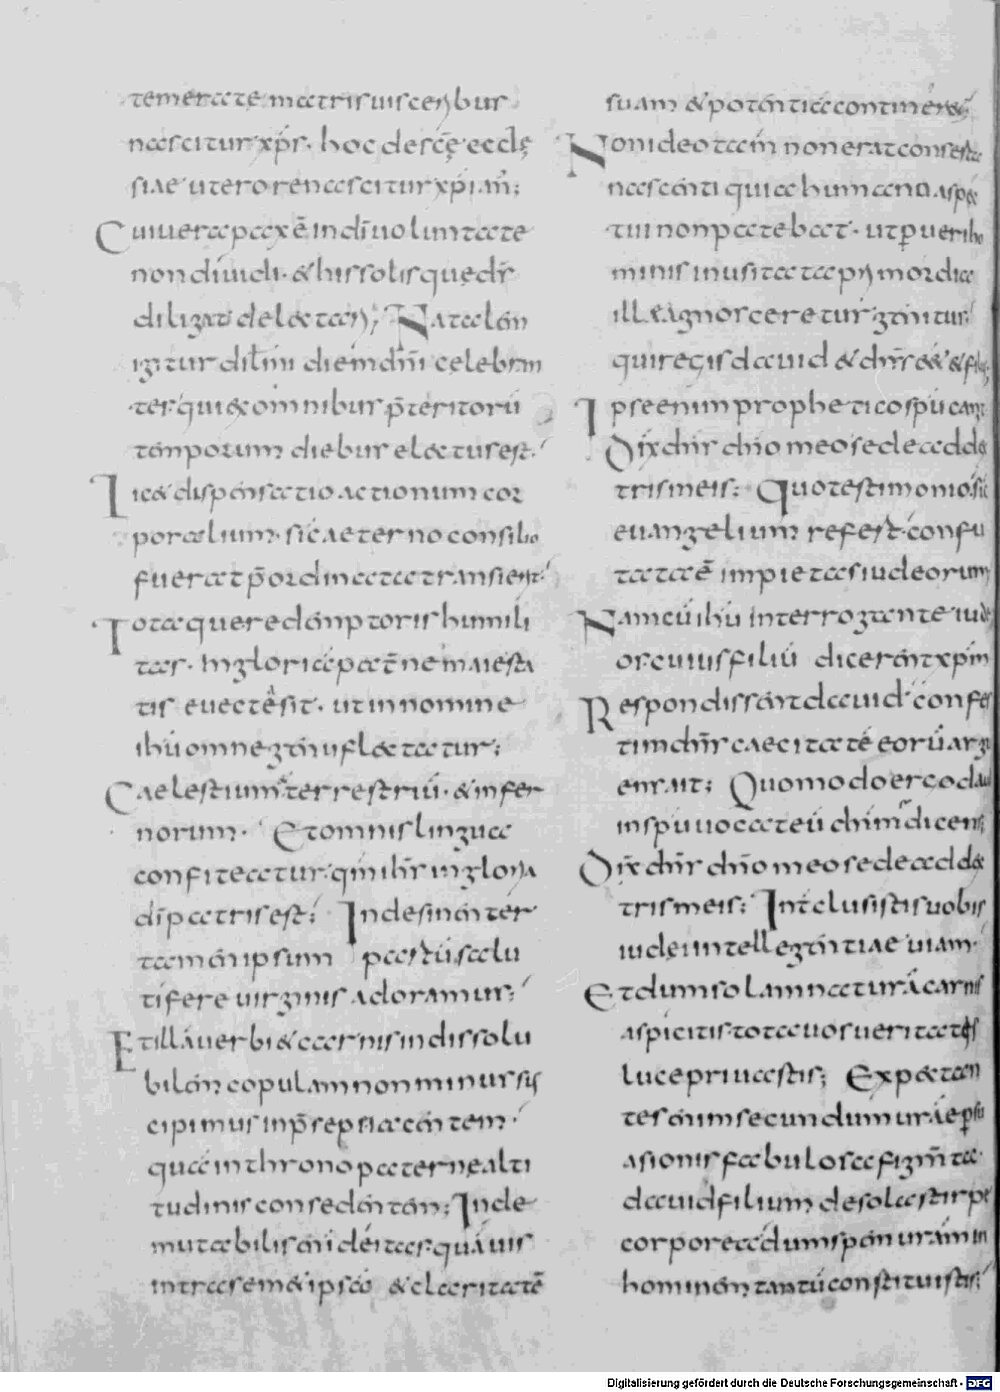 temerate matris uisceribus
nascitur xp̄s. hoc de sc̄ę eccle
siae utero renascitur xp̄ian̄;
Cui uera pax ē in dī uoluntate
non diuidi. & his solis quę d̄s
diligat delectari; Natalem
igitur dil̄mi diem dn̄i celebran
ter. qui ex omnibus p̄teritorū
temporum diebus electus est.
Lic& dispensatio actionum cor
poralium. sic aeterno consilio
fuerat p̄ordinata transierit:
Tota quę redemptoris humili
tas. In gloriā pat̄nę maiesta
tis euecta sit. ut in nomine
ihū omne genu flectatur;
Caelestium terrestriū. & infer
norum. Et omnis lingua
confiteatur. qm̄ ihs in gloria
dī patris est; Indesinenter
tamen ipsum partū salu
tiferę uirginis adoramus;
Et illā uerbi & carnis indissolu
bilem copulam non minus sus
cipimus in p̄sepi iacentem.
quā in throno paternę alti
tudinis consedentem; In de
mutabilis enī deitas. quāuis
intra sem&ipsā & claritatē
suam & potentiā contineretur
Non ideo tam̄ non erat confesta
nascenti quia humano aspec
tui non patebat. ut p̄ uerbo
minis inusitatae primordia
ille agnosceretur. genitur
qui regis dauid & dn̄s e& & filius
Ipse enim prophetico sp̄u canit
Dix dn̄s dn̄o meo sede ad dex
tris meis; Quo testimonio. sic
euangelium refest. confu
tata ē impietas iudeorum
Nam cū ihū interrogante iude
os cuius filiū dicerent xp̄m
Respondissent dauid. confes
tim dn̄s caecitatē eorū argu
ens. ait; Quomodo ergo dauid
in sp̄u uocat eū dn̄m dicens
Dix̄ dn̄s dn̄o meo sede ad dex
tris meis; Interclusistis uobis
iudęi intellegentiae uiam.
Et dum solam naturā carnis
aspicitis. tota uos ueritatis
luce priuastis; Expectan
tes enim secundum ur̄ae p̄su
asionis fabulosa figm̄ta
dauid filium de sola stirpe
corporea dum spem ur̄am in
hominem tantū constituistis;